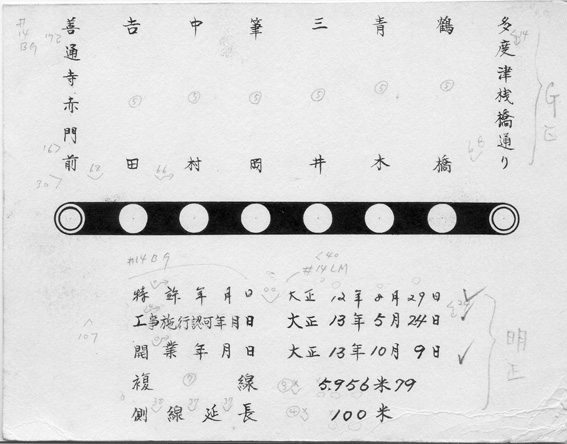 善通寺赤門前
吉田
中村
筆岡
三井
青木
鶴橋
多度津桟橋通り
特許年月日 大正12年8月29日
工事施行認可年月日 大正13年5月24日
開業年月日 大正13年10月9日
複線 5.956米79
側線延長 100米
G正
明正
#14BG
#14LM
107